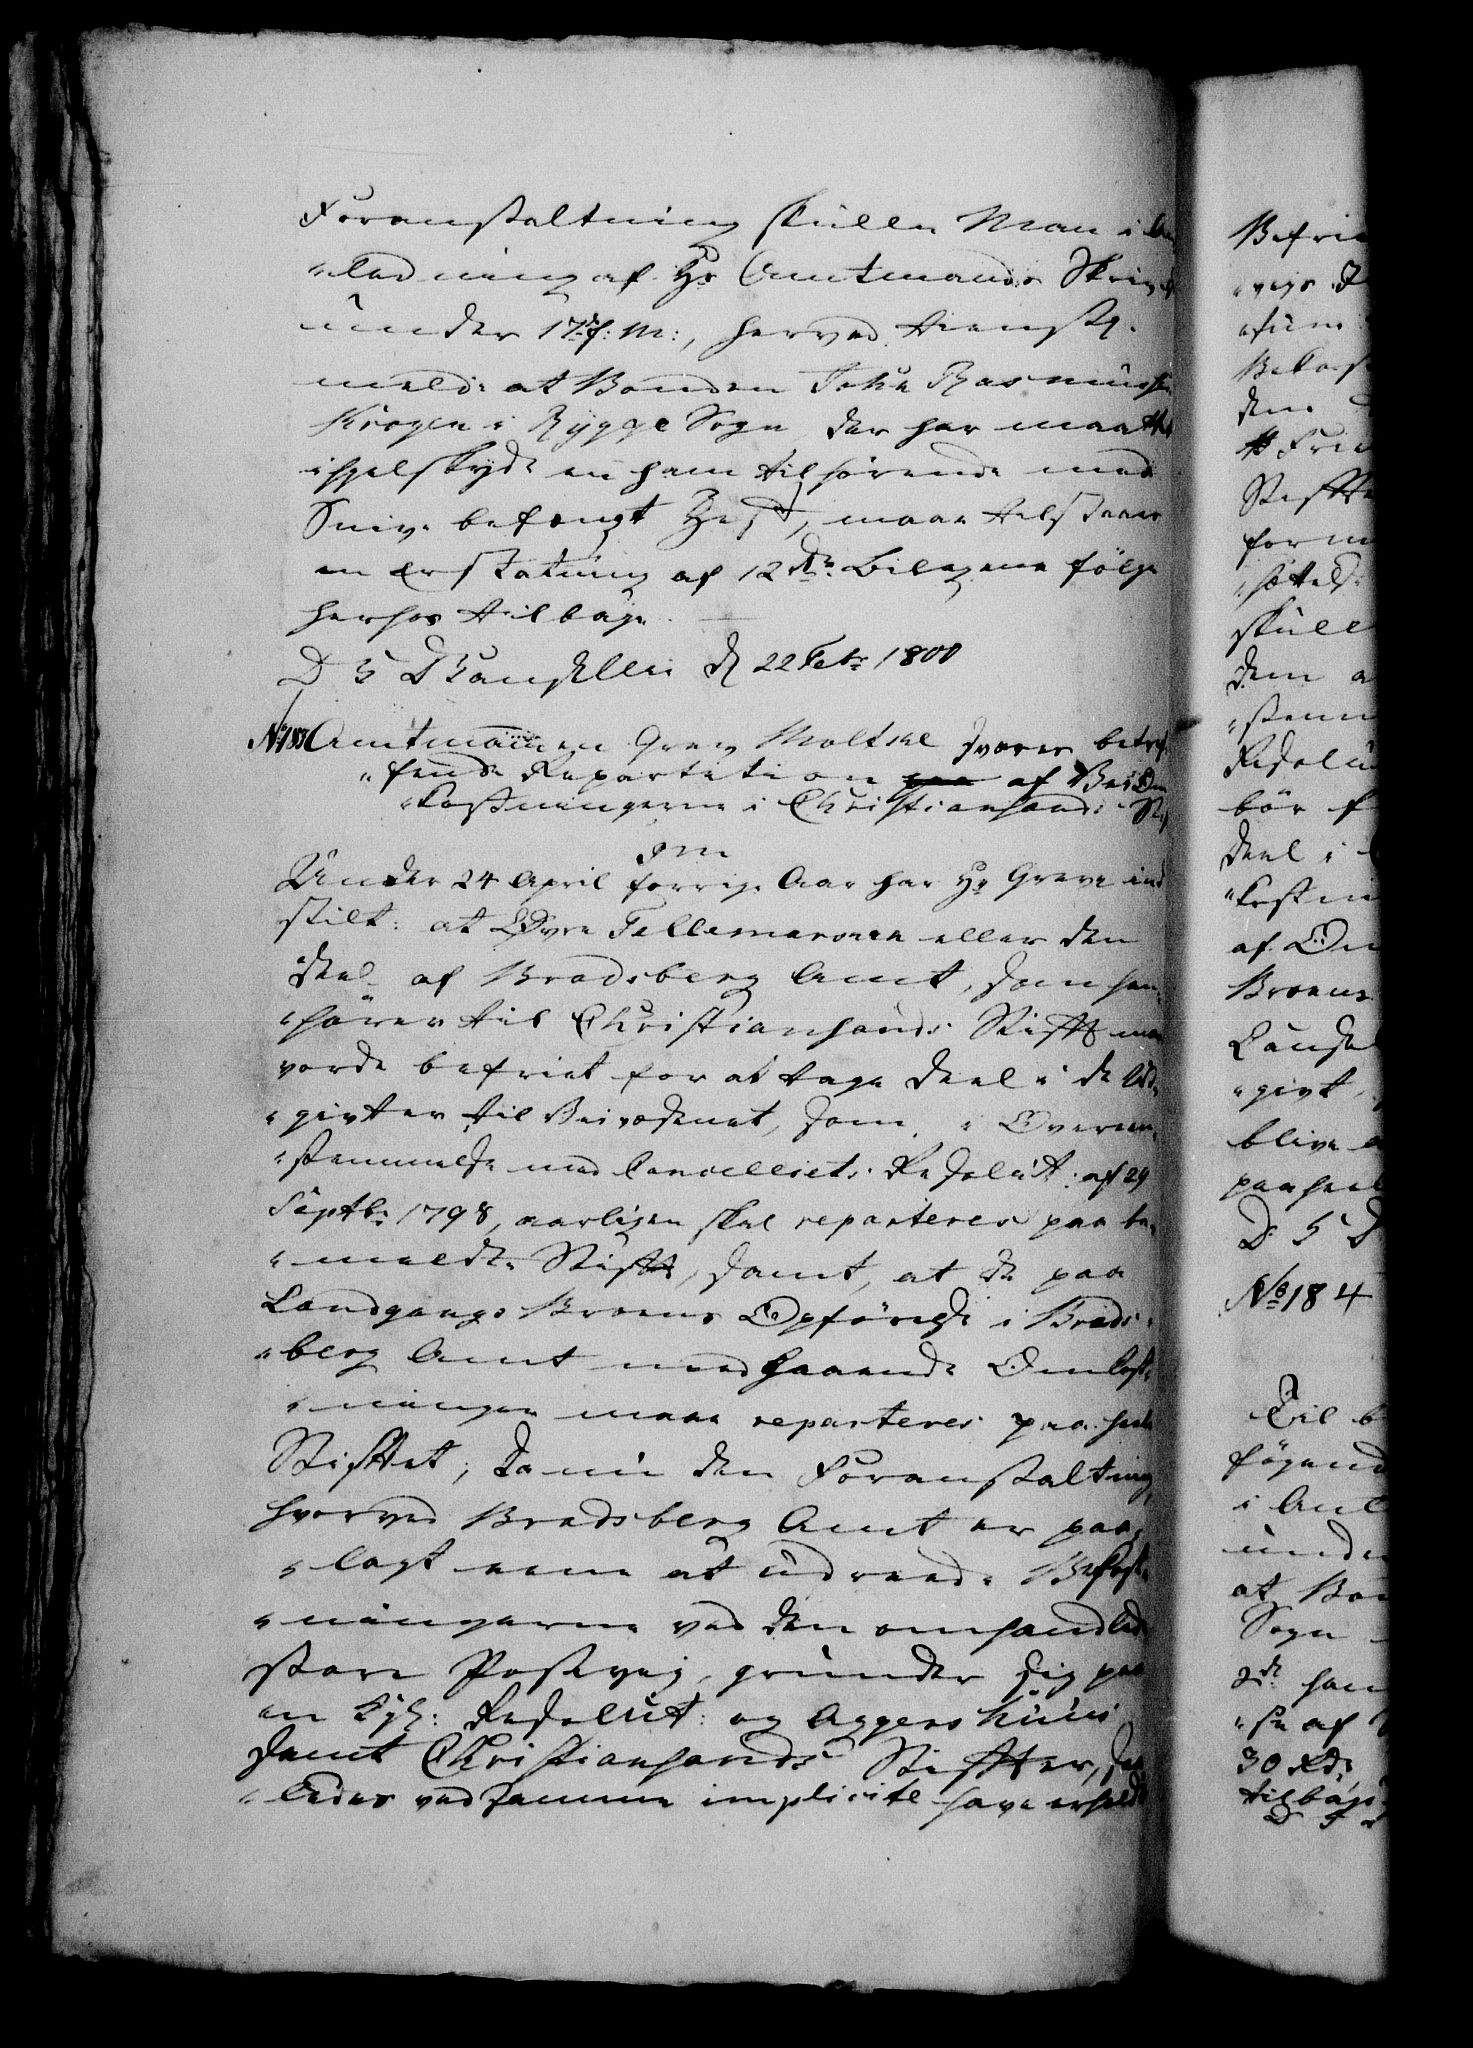 Foranstaltning skulle Man i An
„ledning af Hr Amtmands Skriv
under 17de f: M:, herved tienstl.
melde at Bonden Johu Rasmussen
Krogen i Rygge Sogn der har maattet
ihjelskyde en ham tilhørende med
Snive befængt Hest, maae tilstaaes
en Erstatning af 12 rdr. Bilagene følge
herhos tilbage.
D 5 D Cancellie d 22 Febr 1800
No 183 Amtmanden Grev Moltke svares betref
„fende Repartition af Vei Om
„kostningerne i Christiansands Stift
Under 24 April forrige Aar har Hr Greve ind
stilt: at Øvre Tellemarken eller den
Deel af Bradsberg Amt, som hen
„hører til Christiansands Stift maa
vorde befriet for at tage Deel i de Ud
„givter til Veivæsenet, som i Overeen
„stemmelse med Cancelliets Resolut: af 29
Septbr 1798, aarligen skal reparteres paa be
„meldte Stift, samt, at de paa
Landgangs Broens Opførelse i Brads
„berg Amt medgaaende Omkost
„ninger maae reparteres paa heele
Stiftet; Da nu den Foranstaltning,
hvorved Bradsberg Amt er paa
„lagt eene at udreede Bekost
„ningerne ved den omhandlede
store Postvej, grunder sig paa
en Kgl: Resolut: og Aggershuus
samt Christiansands Stifter, saa
„ledes ved samme implicite have erholdt
Befrie
„vejs
Bekost
den
Stifte
form
skulle
dem a
„stem
Resolu
bør f
Deel i
„kostni
af Om
Broens
Cancel
„givt
blive
paa heel
D 5 D
No 184
Til b
føgend
i Anl
unde
at Bon
Sogn
2de ham
„se af
30 Rdr
tilbage
D 5